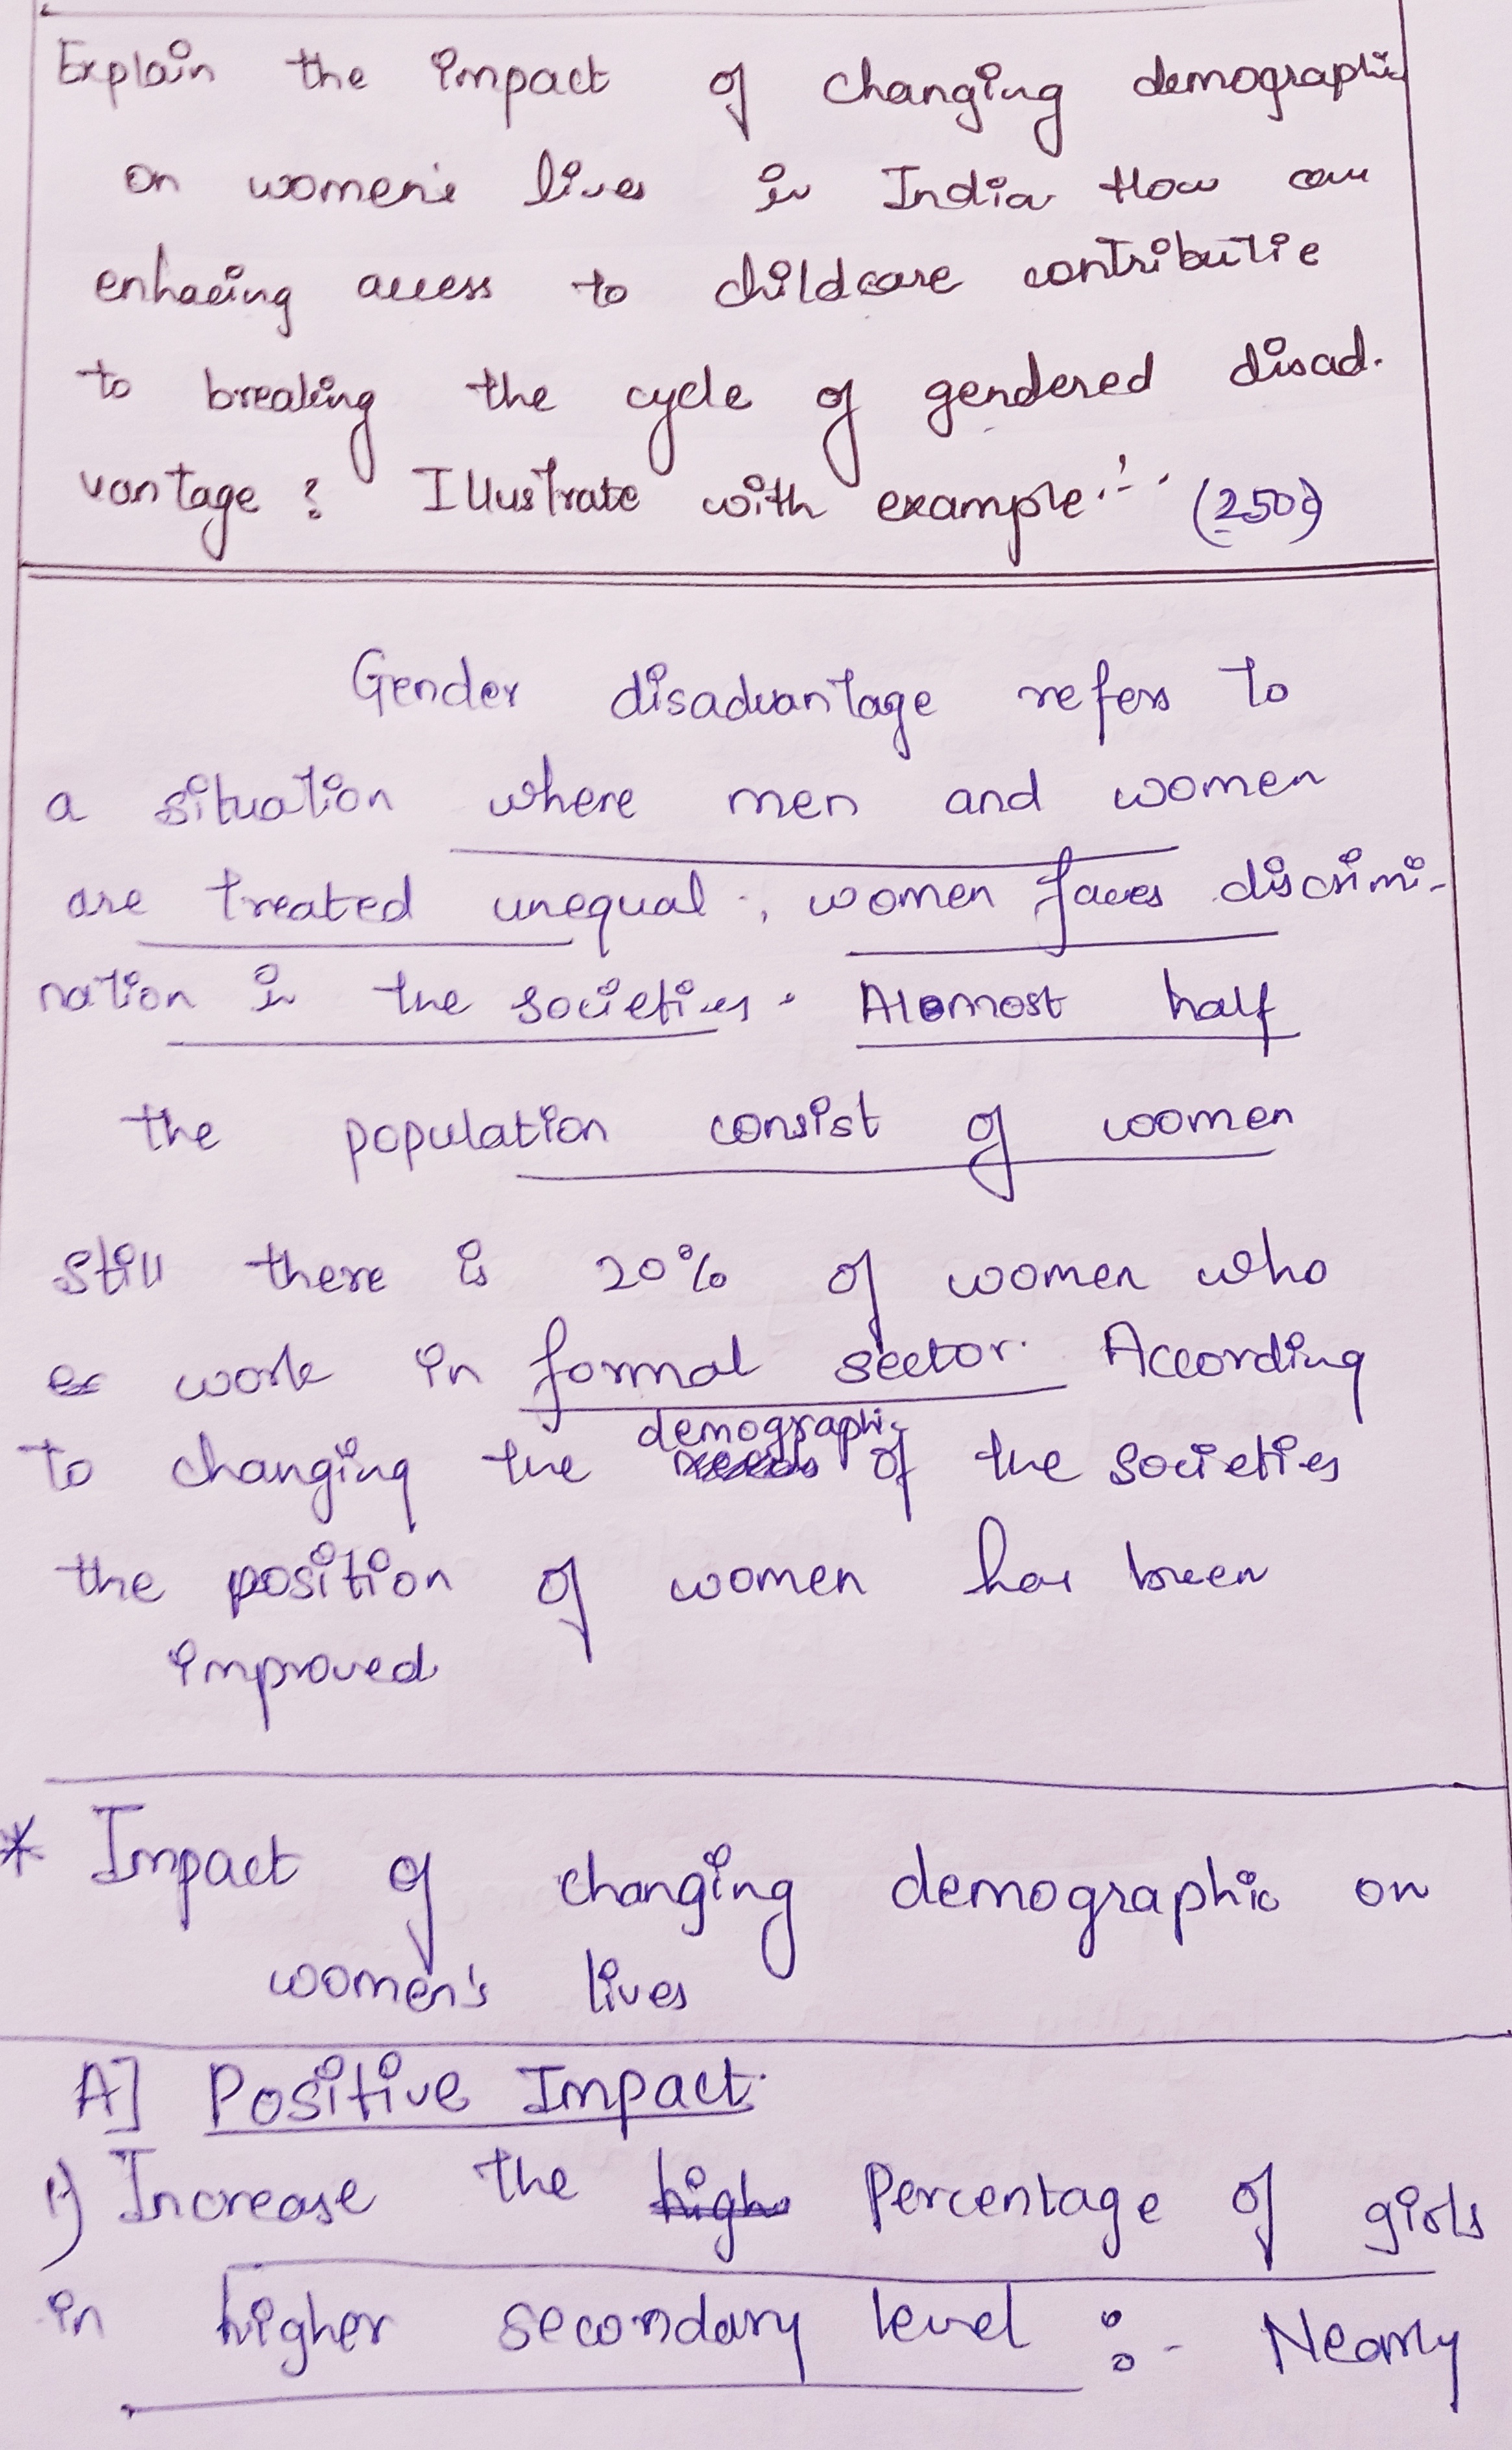 Explain the impact of changing demographic
on women's lives in India How can
enhacing access to childcare contributie
to breaking the cycle of gendered disad-
vantage ? Illustrate with example. (250)
Gender disadvantage refers to
a situation where men and women
are treated unequal, women faces discrimi-
nation in the societies. Alomost half
the population consist of women
still there is 20% of women who
work in formal sector. According
to changing the demographic of the societies
the position of women has been
improved
* Impact of changing demographic on
women's lives
A] Positive Impact.
1) Increase the high Percentage of girls
in higher secondary level :- Nearly